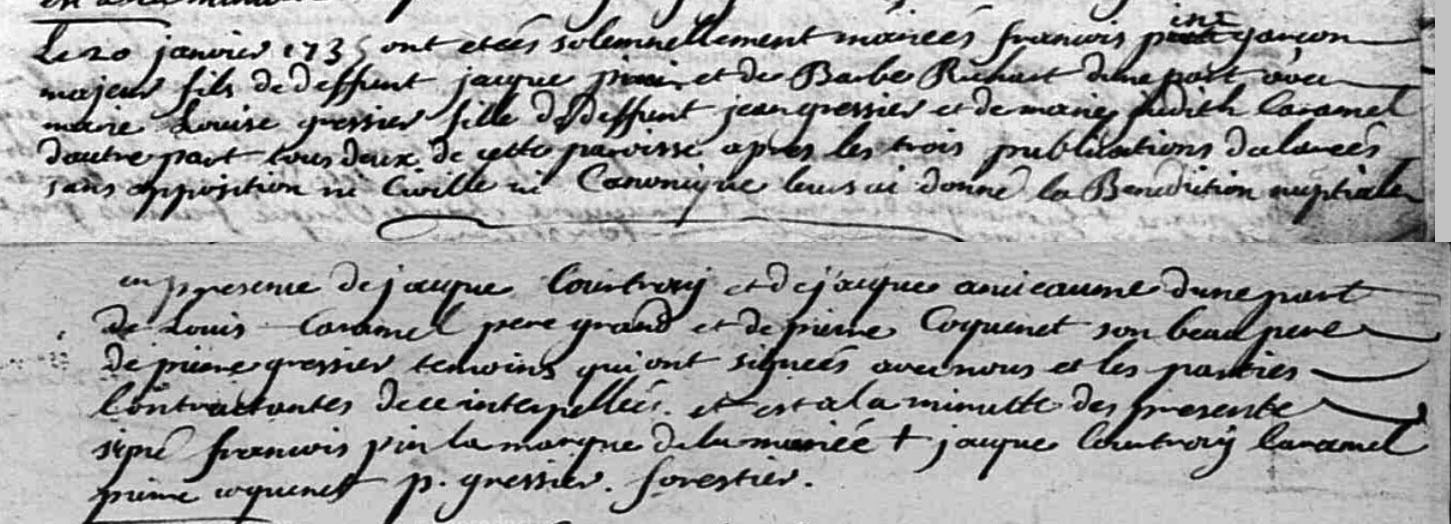 Le 20 janvier 1735 ont etéés solemnellement mariéés francois pint garçon
majeur fils de deffunt jacque pin et de Barbe Richart dune part avec
marie Louise gressier fille de deffunt jean gressier et de marie judith Caramel
dautre part tous deux de cette paroisse apres les trois publications
sans opposition ni Civille ni Canonique leurs ai donné la Benediction nuptiale
en presence de jacque Courtroij et de jacque aniceaume dune part
de Louis Caramel pere grand et de pierre Coquenet son beau pere
de pierre gressier temoins qui ont signéés avec nous et les parties
Contractantes de ce interpelléés. et est a la minutte des presente
signé francois pin la marque de la mariéé + jacque Courtroij Caramel
pierre coquenet p. gressier. forestier.